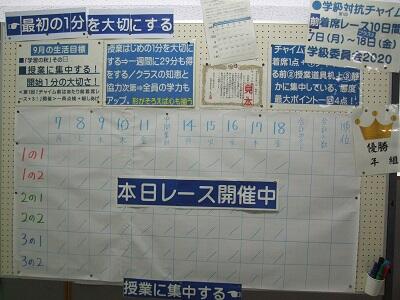 ☞最初の1分を大切にする
●学級対抗チャイム
前着席レース10日間
7日(月)〜18日(金)
学級委員会2020
9月の生活目標
「学習の秋」その日
■授業に集中する!
開始1分の大切さ!
授業はじめの1分を大切に
する→一週間に29分も得
をする/クラスの知恵と
協力次第⇒全員の学力も
アップ。形がそろえば心も揃う
見本
チャイム
着席1点+
る前②授業道具机上③静
かに集中している。態度
最大ポイント一回4点!
7 8 9 10 11 14 15 16 17 18 順位
月 火 水 木 金 月 火 水 木 金
1の1
1の2
2の1
2の2
3の1
3の2
本日レース開催中
優勝
年 組
授業に集中する☞